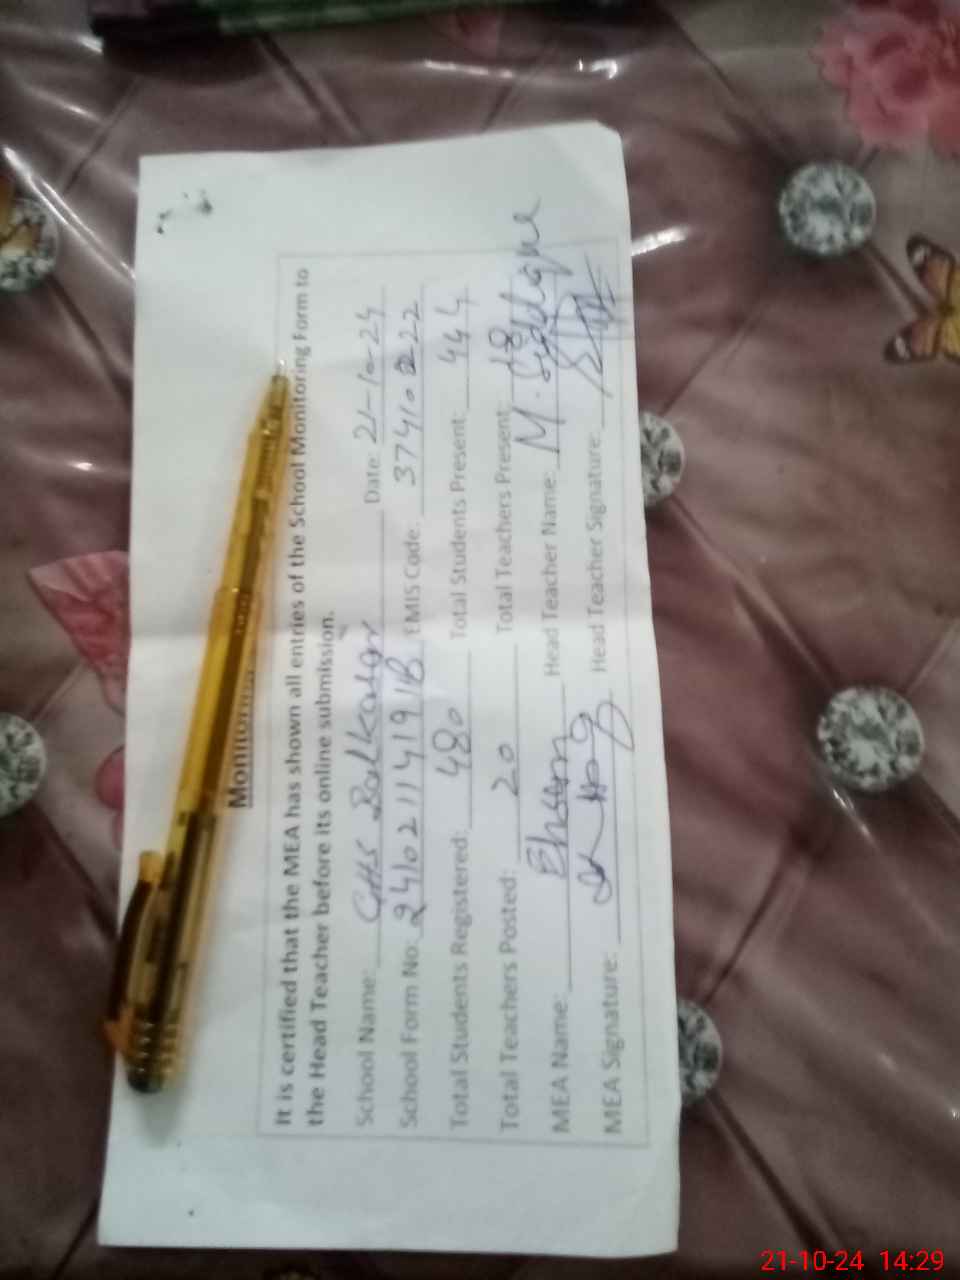 Monitoring
It is certified that the MEA has shown all entries of the School Monitoring Form to
the Head Teacher before its online submission.
School Name: GHS Date: 21-10-24
School Form No: EMIS Code: 37410222
Total Students Registered: 480 Total Students Present: 444
Total Teachers Posted: 20 Total Teachers Present: 18
MEA Name: Ehsan Head Teacher Name: M. Siddique
MEA Signature: Head Teacher Signature:
21-10-24 14:29